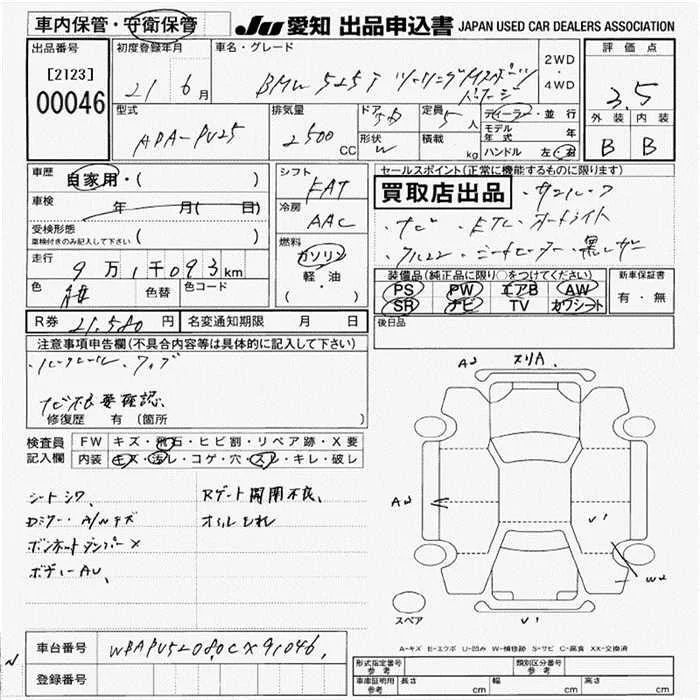 車内保管・守衛保管
JU 愛知 出品申込書 JAPAN USED CAR DEALERS ASSOCIATION
出品番号
[2123]
00046
初度登録年月
21 6月
車名・グレード
BMW 525i ツーリングMスポーツ
パッケージ
2WD
・
4WD
評価点
3.5
外装 内装
B B
型式
ABA-PU25
排気量
2500 CC
ドア
5D
形状
W
定員
5人
積載
kg
ディーラー・並行
モデル年式 年
ハンドル 左・右
車歴
自家用・( )
車検
年 月( 日)
受検形態
車検付きのみ記入して下さい ( )
走行
9万1千093km
色
紺
色替
色コード
R券 21,580円
名変通知期限 月 日
シフト
FAT
冷房
AAC
燃料
ガソリン
軽・油
( )
セールスポイント(正常に機能するものに限ります)
買取店出品・サンルーフ
・ナビ ・ETC ・オートライト
・アルミ ・シートヒーター ・黒レザー
装備品(純正品に限り○をつけてください)
PS PW エアB AW
SR ナビ TV カワシート
新車保証書
有・無
後日品
注意事項申告欄(不具合内容等は具体的に記入して下さい)
ナビ不良要確認
修復歴 有(箇所 )
検査員
記入欄
FW キズ・飛石・ヒビ割・リペア跡・X要
内装 キズ・汚レ・コゲ・穴・スレ・キレ・破レ
シートシワ、
Rゲート開閉不良、
Dミラー A/Wキズ
オイルもれ
ボンネットダンパーX
ボディーAU、
A2 スリA.
AU
U1
W2
U1
スペア
A-キズ E-エクボ U-凹み W-補修跡 S-サビ C-腐食 XX-交換済
車台番号 WBAPU52080CX91046
登録番号
形式指定番号
参考
類別区分番号
参考
車庫証明用
参考
長さ cm 幅 cm 高さ cm